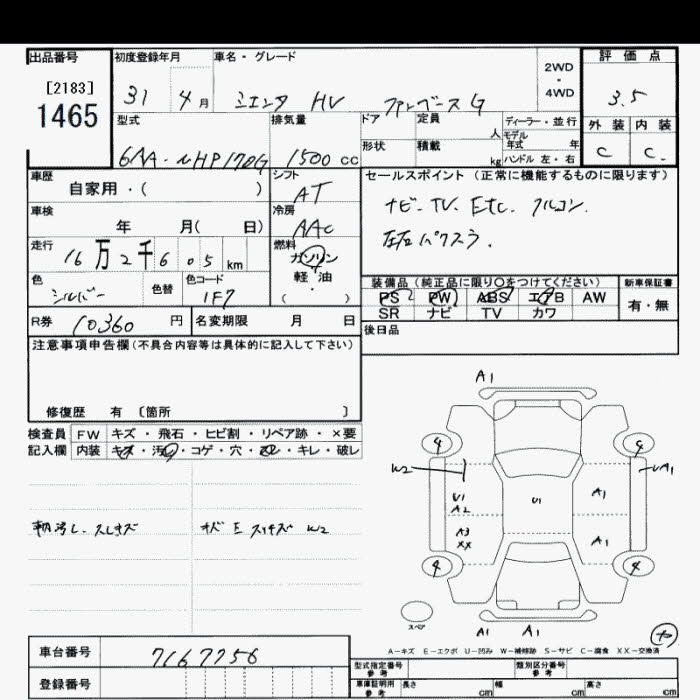 出品番号 初度登録年月 車名・グレード 2WD・4WD 評価点
[2183]
1465
31 4月 シエンタ HV ファンベースG 3.5
型式 排気量 ドア 定員 人 ディーラー・並行 外装 内装
モデル年式 年
形状 積載 kg ハンドル 左・右
6AA-NHP170G 1500cc C C
車歴 シフト セールスポイント(正常に機能するものに限ります)
自家用・( ) AT
ナビ TV. Etc.
車検 冷房
年 月( 日) AAC
左右パワスラ.
走行 燃料
16万2千605km ガソリン
軽・油
( )
色 色替 色コード 装備品(純正品に限り○をつけてください) 新車保証書
シルバー 1F7 PS PW ABS エアB AW 有・無
SR ナビ TV カワ
R券 10360円 名変期限 月 日 後日品
注意事項申告欄(不具合内容等は具体的に記入して下さい)
修復歴 有 〔箇所 〕
検査員 FW キズ・飛石・ヒビ割・リペア跡・×要
記入欄 内装 キズ・汚・コゲ・穴・・キレ・破レ
A1
4 4
W2 UA1
U1 U1 A1
A2
A3 A1
XX
4 4
スペア
A1 A1
A-キズ E-エクボ U-凹み W-補修跡 S-サビ C-腐食 XX-交換済
車台番号 7167756
登録番号
型式指定番号 参考 類別区分番号 参考
車庫証明用 参考 長さ cm 幅 cm 高さ cm